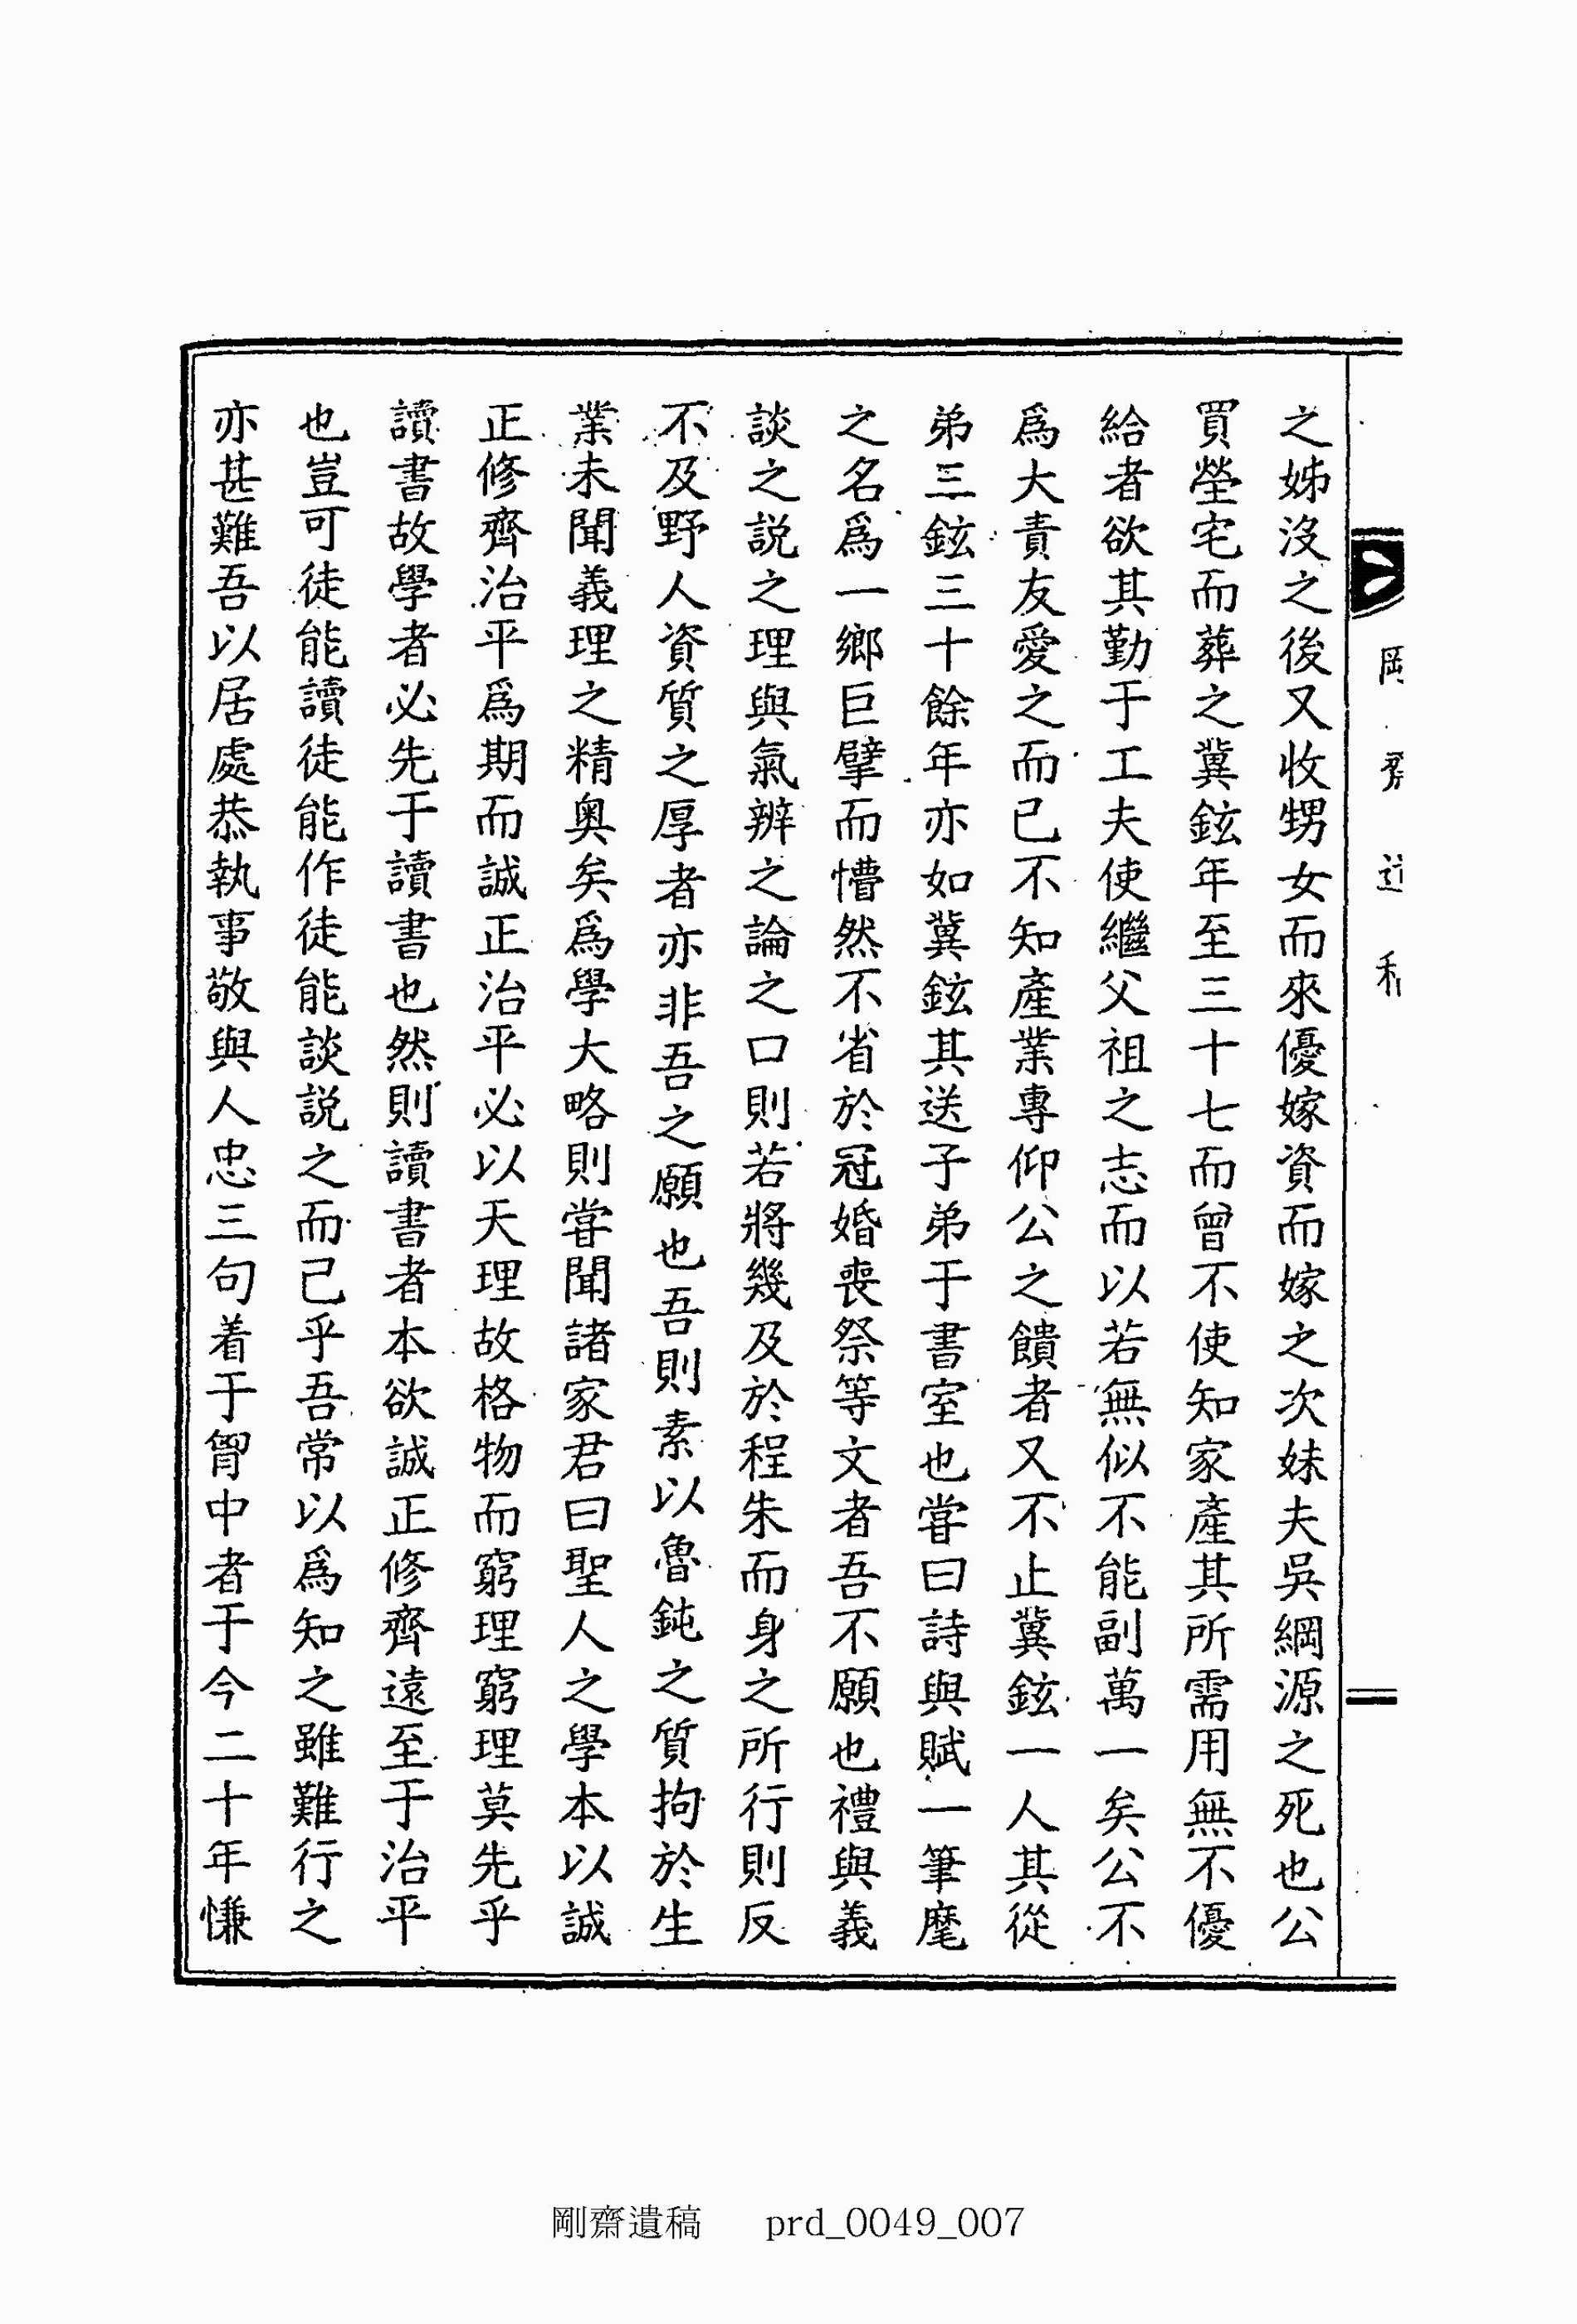 之姊沒之後又收甥女而來優嫁資而嫁之次妹夫吳綱源之死也公
買塋宅而葬之冀鉉年至三十七而曾不使知家產其所需用無不優
給者欲其勤于工夫使繼父祖之志而以若無似不能副萬一矣公不
爲大責友愛之而已不知產業專仰公之饋者又不止冀鉉一人其從
弟三鉉三十餘年亦如冀鉉其送子弟于書室也甞曰詩與賦一筆麾
之名爲一鄉巨擘而懵然不省於冠婚喪祭等文者吾不願也禮與義
談之説之理與氣辨之論之口則若將幾及於程朱而身之所行則反
不及野人資質之厚者亦非吾之願也吾則素以魯鈍之質拘於生
業未聞義理之精奧矣爲學大略則甞聞諸家君曰聖人之學本以誠
正修齊治平爲期而誠正治平必以天理故格物而窮理窮理莫先乎
讀書故學者必先于讀書也然則讀書者本欲誠正修齊遠至于治平
也豈可徒能讀徒能作徒能談説之而己乎吾常以爲知之雖難行之
亦甚難吾以居處恭執事敬與人忠三句着于胷中者于今二十年慊
二
剛齋遺稿 prd_0049_007